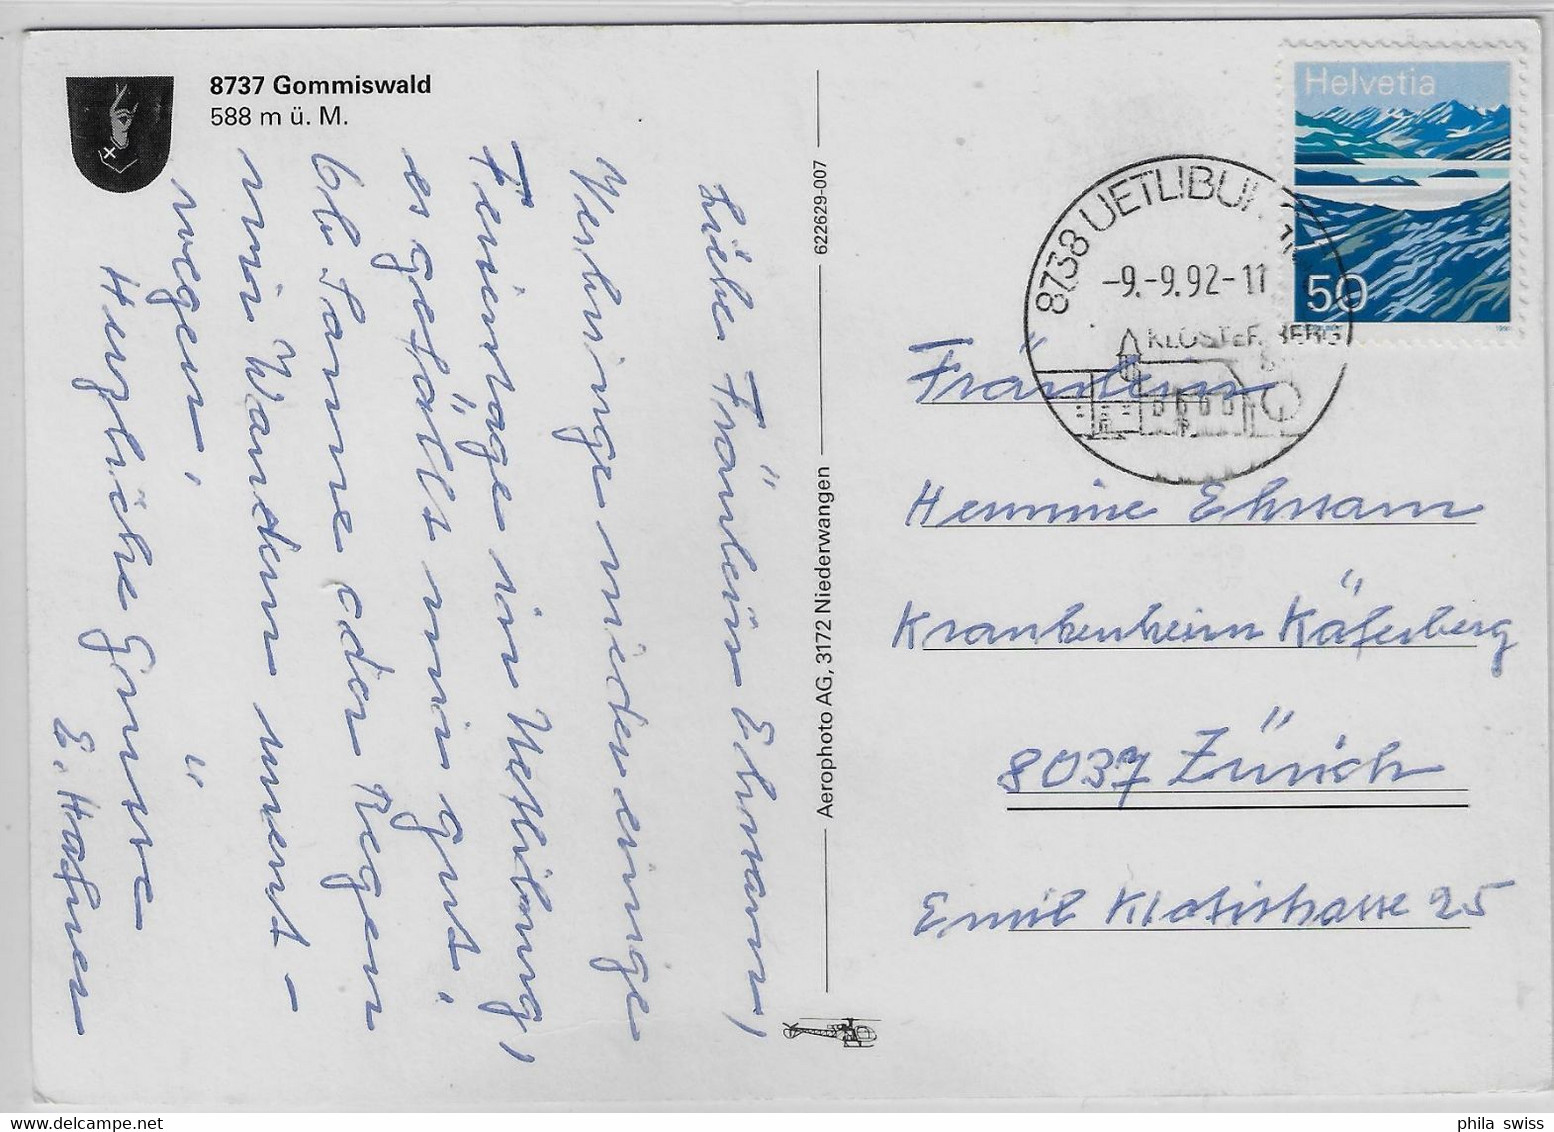 8737 Gommiswald
588 m ü. M.
Liebe Fräulein Ehrsam,
Verbringe wieder einige
Feiertage in Uetliburg,
es gefällt mir gut.
Ob Sonne oder Regen
mir Wandern unent-
wegen,
Herzliche Grüsse
E. Hafner
Aerophoto AG, 3172 Niederwangen
622629-007
Helvetia
50
8738 UETLIBURG
-9.-9.92-11
KLOSTER BERG
Fräulein
Hermine Ehrsam
Krankenheim Käferberg
8037 Zürich
Emil Klötistrasse 25
phila swiss